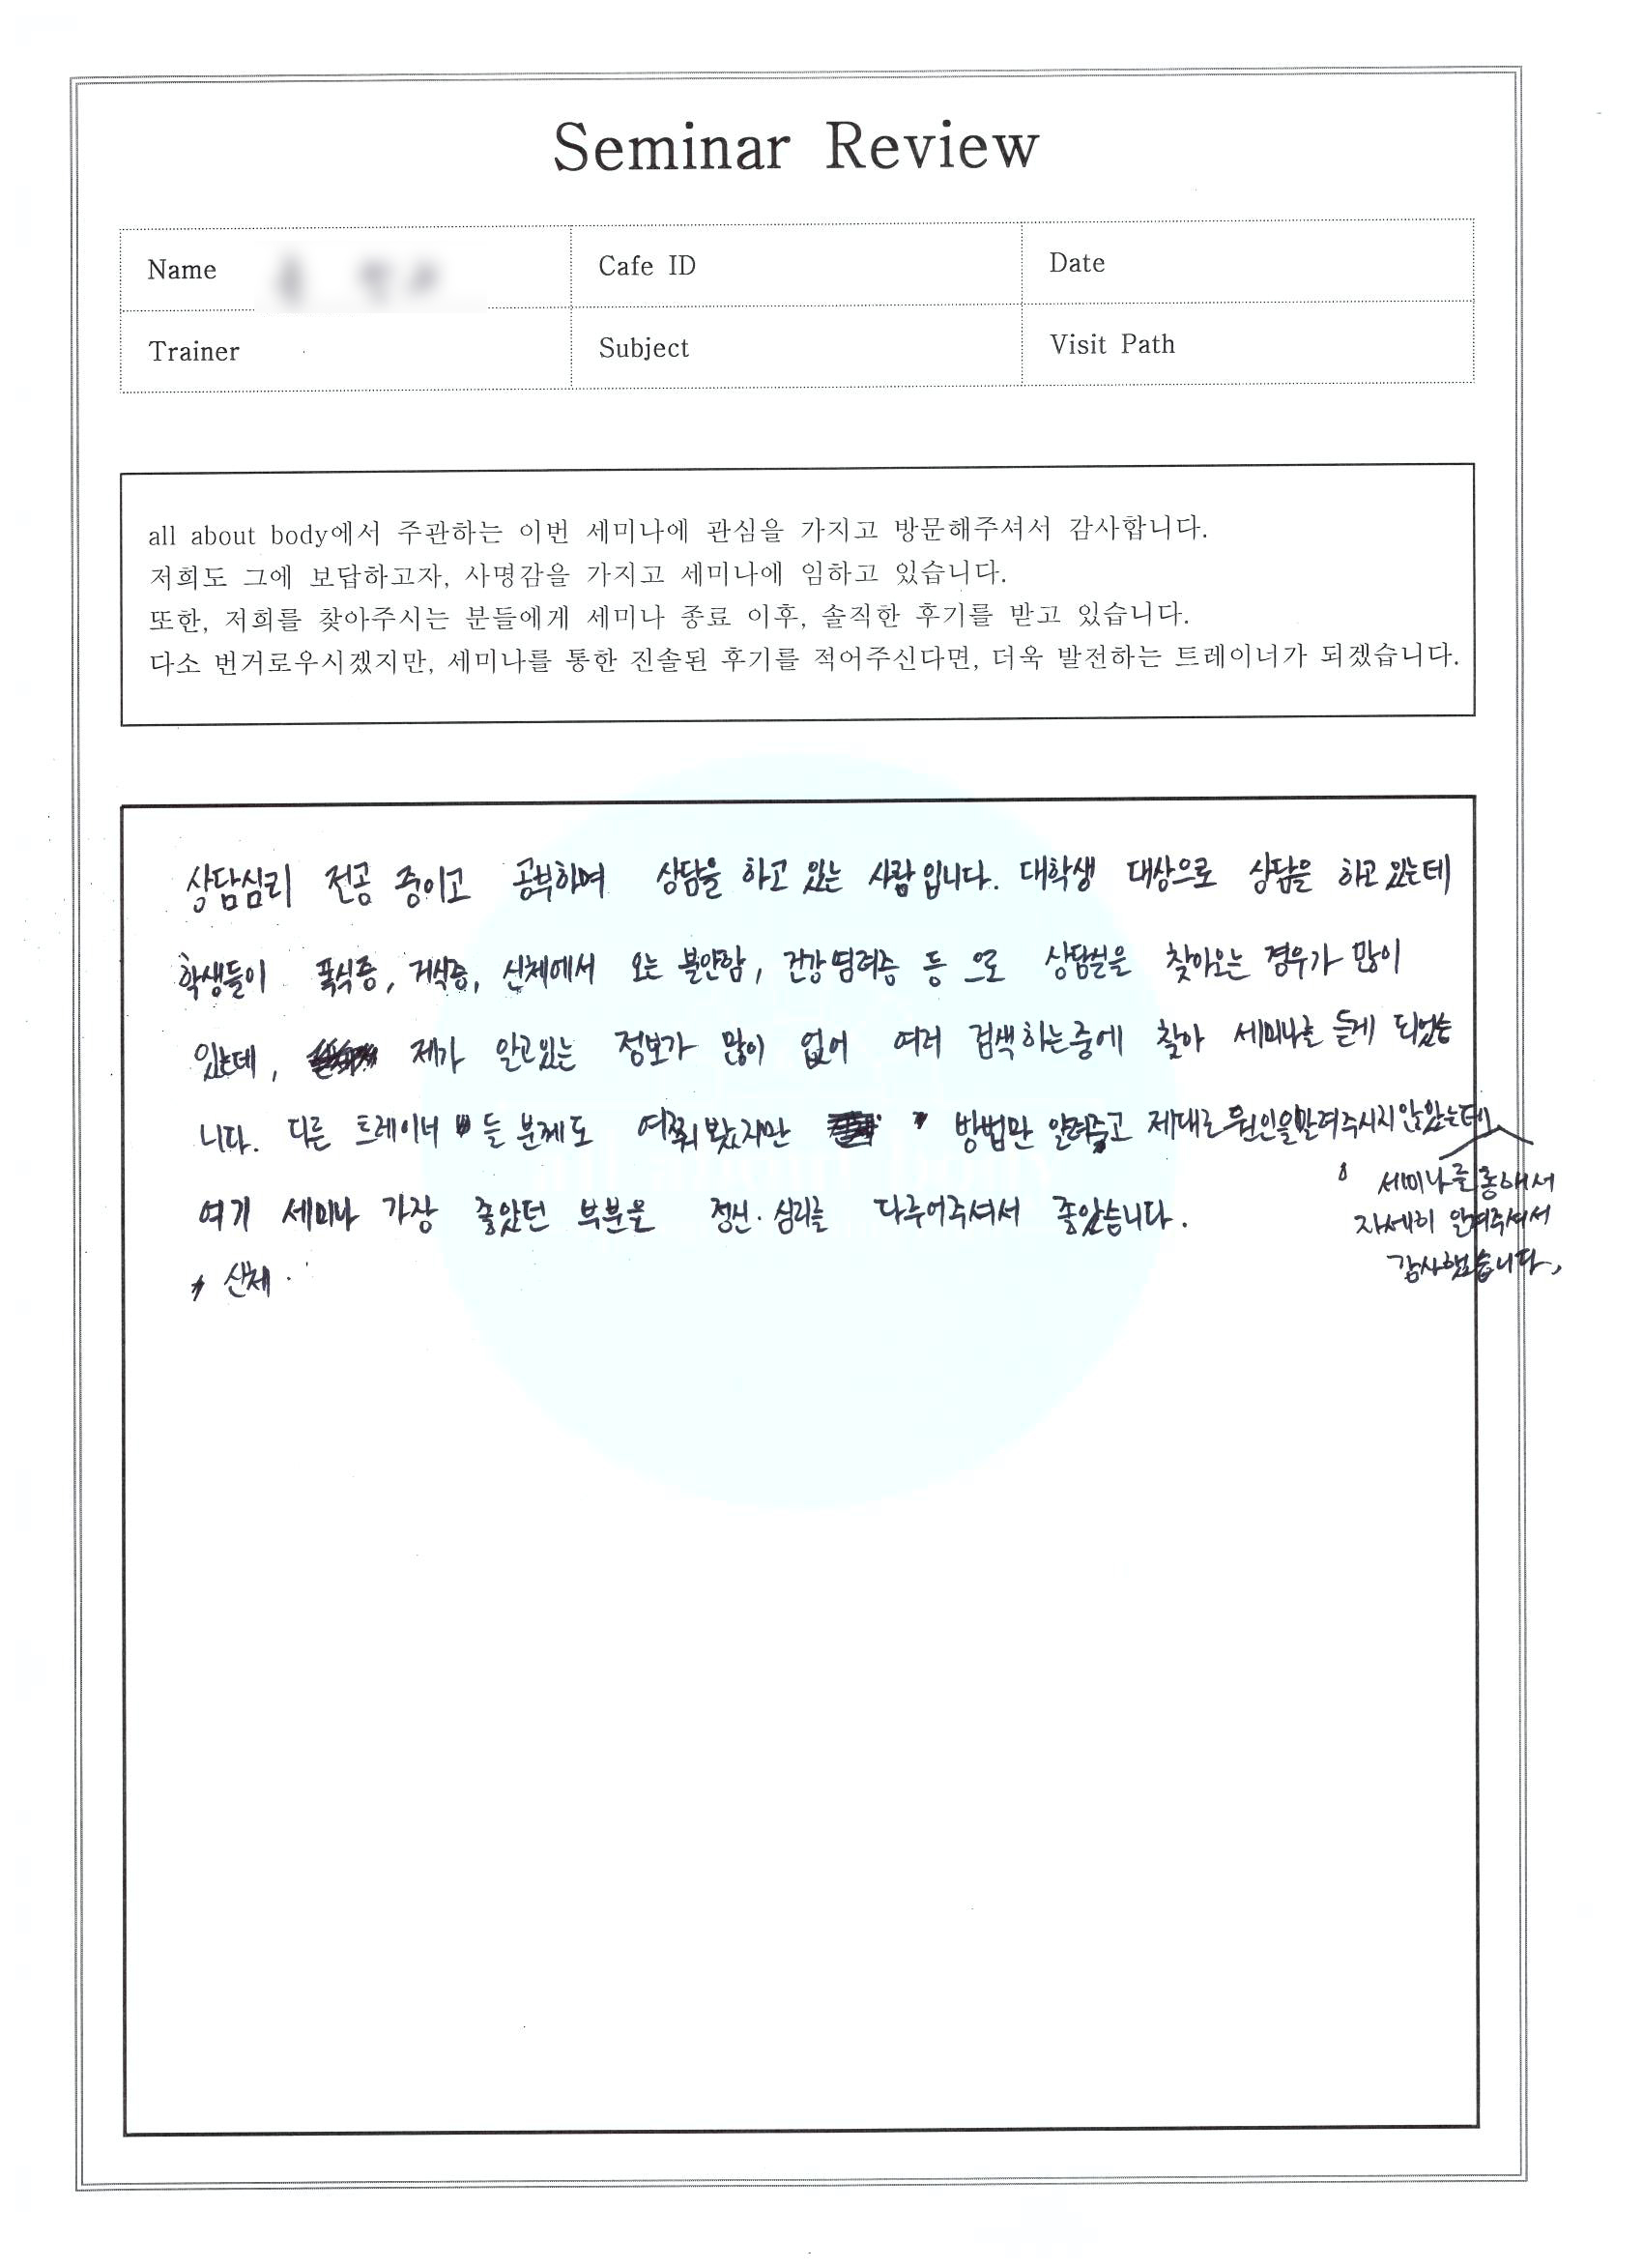 Seminar Review
Name
Cafe ID
Date
Trainer
Subject
Visit Path
all about body에서 주관하는 이번 세미나에 관심을 가지고 방문해주셔서 감사합니다.
저희도 그에 보답하고자, 사명감을 가지고 세미나에 임하고 있습니다.
또한, 저희를 찾아주시는 분들에게 세미나 종료 이후, 솔직한 후기를 받고 있습니다.
다소 번거로우시겠지만, 세미나를 통한 진솔된 후기를 적어주신다면, 더욱 발전하는 트레이너가 되겠습니다.
상담심리 전공 중이고 공부하며 상담을 하고 있는 사람입니다. 대학생 대상으로 상담을 하고 있는데
학생들이 폭식증, 거식증, 신체에서 오는 불안함, 건강염려증 등 으로 상담실을 찾아오는 경우가 많이
있는데, 제가 알고있는 정보가 많이 없어 여러 검색하는중에 찾아 세미나를 듣게 되었습
니다. 다른 트레이너 들 분께도 여쭤봤지만 방법만 알려주고 제대로 원인을 알려주시지 않았는데
세미나를 통해서
자세히 알려주셔서
감사했습니다,
여기 세미나 가장 좋았던 부분은 정신·심리를 다루어주셔서 좋았습니다.
신체·